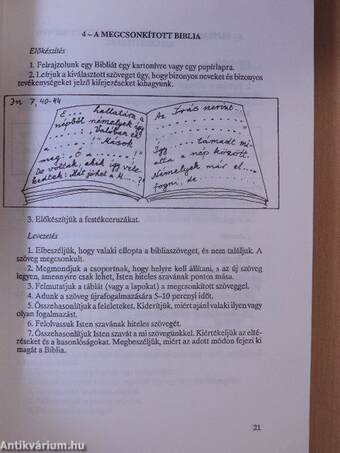 4 – A MEGCSONKÍTOTT BIBLIA
Előkészítés
1. Felrajzolunk egy Bibliát egy kartonívre vagy egy papírlapra.
2. Leírjuk a kiválasztott szöveget úgy, hogy bizonyos neveket és bizonyos
tevékenységeket jelző kifejezéseket kihagyunk.
Jn 7,40-44
E... hallatára a
népből némelyek így
........ Valóban ez
........ Mások
meg: Ő a .....
De voltak, akik így véle-
kedtek: Hát jöhet a M...?
Az Írás nem .....
Így ..... támadt mi-
atta a nép között.
Némelyek már el....
fogni, de ....
3. Előkészítjük a festékceruzákat.
Levezetés
1. Elbeszéljük, hogy valaki ellopta a bibliaszöveget, és nem találjuk. A
szöveg megcsonkult.
2. Megmondjuk a csoportnak, hogy helyre kell állítani, s az új szöveg
legyen, amennyire csak lehet, Isten hiteles szavának pontos mása.
3. Felmutatjuk a táblát (vagy a lapokat) a megcsonkított szöveggel.
4. Adunk a szöveg újrafogalmazására 5–10 percnyi időt.
5. Összehasonlítjuk a feleleteket. Kiderítjük, miért ajánl valaki ilyen vagy
olyan fogalmazást.
6. Felolvassuk Isten szavának hiteles szövegét.
7. Összehasonlítjuk Isten szavát a mi szövegünkkel. Kiértékeljük az elté-
réseket és a hasonlóságokat. Megbeszéljük, miért az adott módon fejezi ki
magát a Biblia.
21
Antikvárium.hu